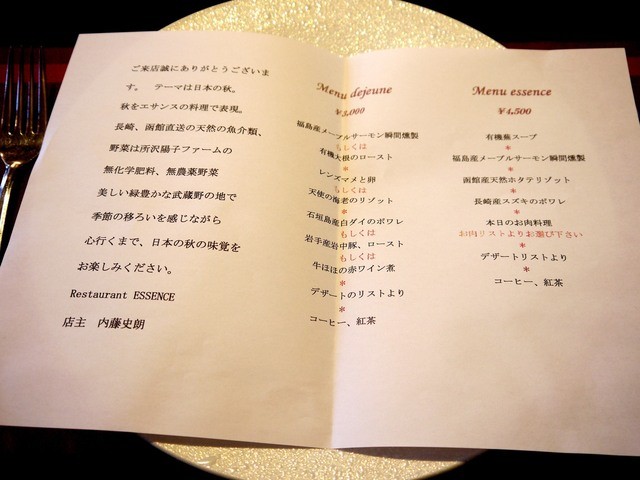 ご来店誠にありがとうございま
す。　テーマは日本の秋。
秋をエサンスの料理で表現。
長崎、函館直送の天然の魚介類、
野菜は所沢陽子ファームの
無化学肥料、無農薬野菜
美しい緑豊かな武蔵野の地で
季節の移ろいを感じながら
心行くまで、日本の秋の味覚を
お楽しみください。
Restaurant ESSENCE
店主　内藤史朗
Menu dejeune
¥3,000
福島産メープルサーモン瞬間燻製
もしくは
有機大根のロースト
*
レンズマメと卵
もしくは
天使の海老のリゾット
*
石垣島産白ダイのポワレ
もしくは
岩手産岩中豚、ロースト
もしくは
牛ほほの赤ワイン煮
*
デザートのリストより
*
コーヒー、紅茶
Menu essence
¥4,500
有機蕪スープ
*
福島産メープルサーモン瞬間燻製
*
函館産天然ホタテリゾット
*
長崎産スズキのポワレ
*
本日のお肉料理
お肉リストよりお選び下さい
*
デザートリストより
*
コーヒー、紅茶